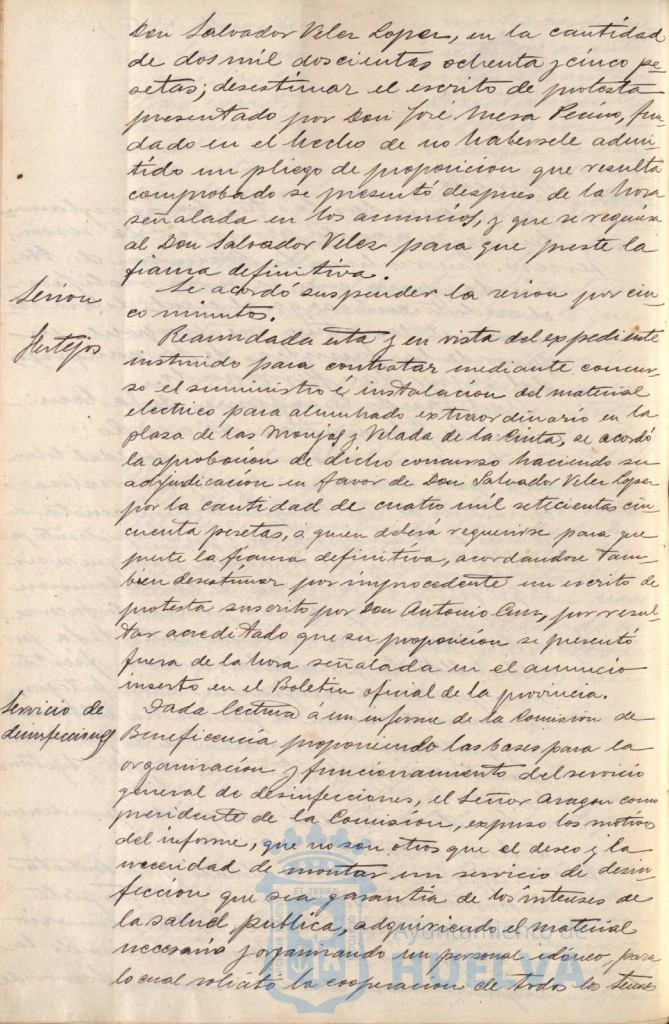 Don Salvador Velez Lopez, en la cantidad
de dos mil doscientas ochenta y cinco pe=
setas; desestimar el escrito de protesta
presentado por Don José Mesa fun
dado en el hecho de no habersele admi-
tido un pliego de proposicion que resulta
comprobado se presentó despues de la hora
señalada en los anuncios, y que se requiera
al Don Salvador Velez para que preste la
fianza definitiva.
Sesion
Se acordó suspender la sesion por cin
co minutos.
Festejos
Reanudada esta y en vista del expediente
instruido para contratar mediante concur-
so el suministro é instalacion del material
electrico para alumbrado extraordinario en la
plaza de las Monjas y Velada de la Cinta, se acordó
la aprobacion de dicho concurso haciendo su
adjudicacion en favor de Don Salvador Velez Lopez
por la cantidad de cuatro mil setecientas cin
cuenta pesetas, á quien deberá requerirse para que
preste la fianza definitiva, acordandose tam-
bien desestimar por improcedente un escrito de
protesta suscrito por Don Antonio Cruz, por resul-
tar acreditado que su proposicion se presentó
fuera de la hora señalada en el anuncio
inserto en el Boletin oficial de la provincia.
Servicio de
desinfecciones
Dada lectura á un informe de la Comision de
Beneficencia proponiendo las bases para la
organizacion y funcionamiento del servicio
general de desinfecciones, el Señor Aragon como
presidente de la Comision, expuso los motivos
del informe, que no son otros que el deseo y la
necesidad de montar un servicio de desin-
feccion que sea garantia de los intereses de
la salud publica, adquiriendo el material
necesario y organizando un personal idóneo, para
lo cual solicitó la cooperacion de todos los
Ayuntamiento de
HUELVA